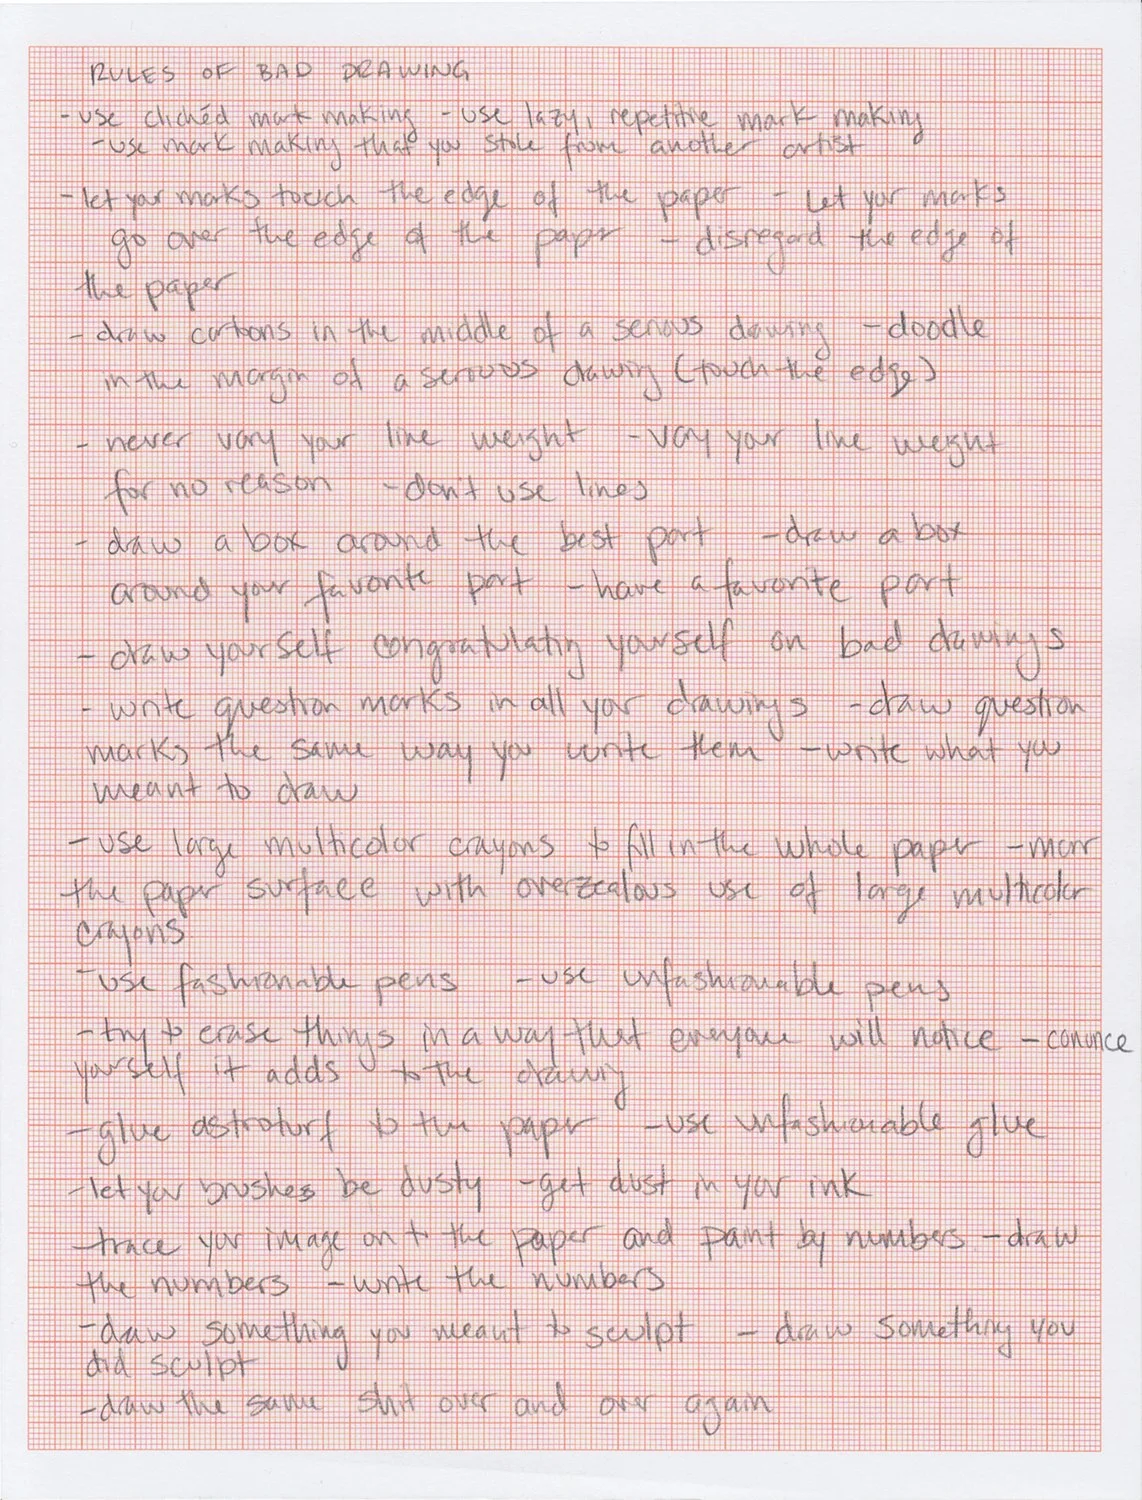 RULES OF BAD DRAWING
- use clichéd mark making - use lazy, repetitive mark making
- use mark making that you stole from another artist
- let your marks touch the edge of the paper - Let your marks
go over the edge of the paper - disregard the edge of
the paper
- draw cartoons in the middle of a serious drawing - doodle
in the margin of a serious drawing (touch the edge)
- never vary your line weight - vary your line weight
for no reason - don't use lines
- draw a box around the best part - draw a box
around your favorite part - have a favorite part
- draw yourself congratulating yourself on bad drawings
- write question marks in all your drawings - draw question
marks the same way you write them - write what you
meant to draw
- use large multicolor crayons to fill in the whole paper - marr
the paper surface with overzealous use of large multicolor
crayons
- use fashionable pens - use unfashionable pens
- try to erase things in a way that everyone will notice - convince
yourself it adds to the drawing
- glue astroturf to the paper - use unfashionable glue
- let your brushes be dusty - get dust in your ink
- trace your image on to the paper and paint by numbers - draw
the numbers - write the numbers
- draw something you meant to sculpt - draw something you
did sculpt
- draw the same shit over and over again